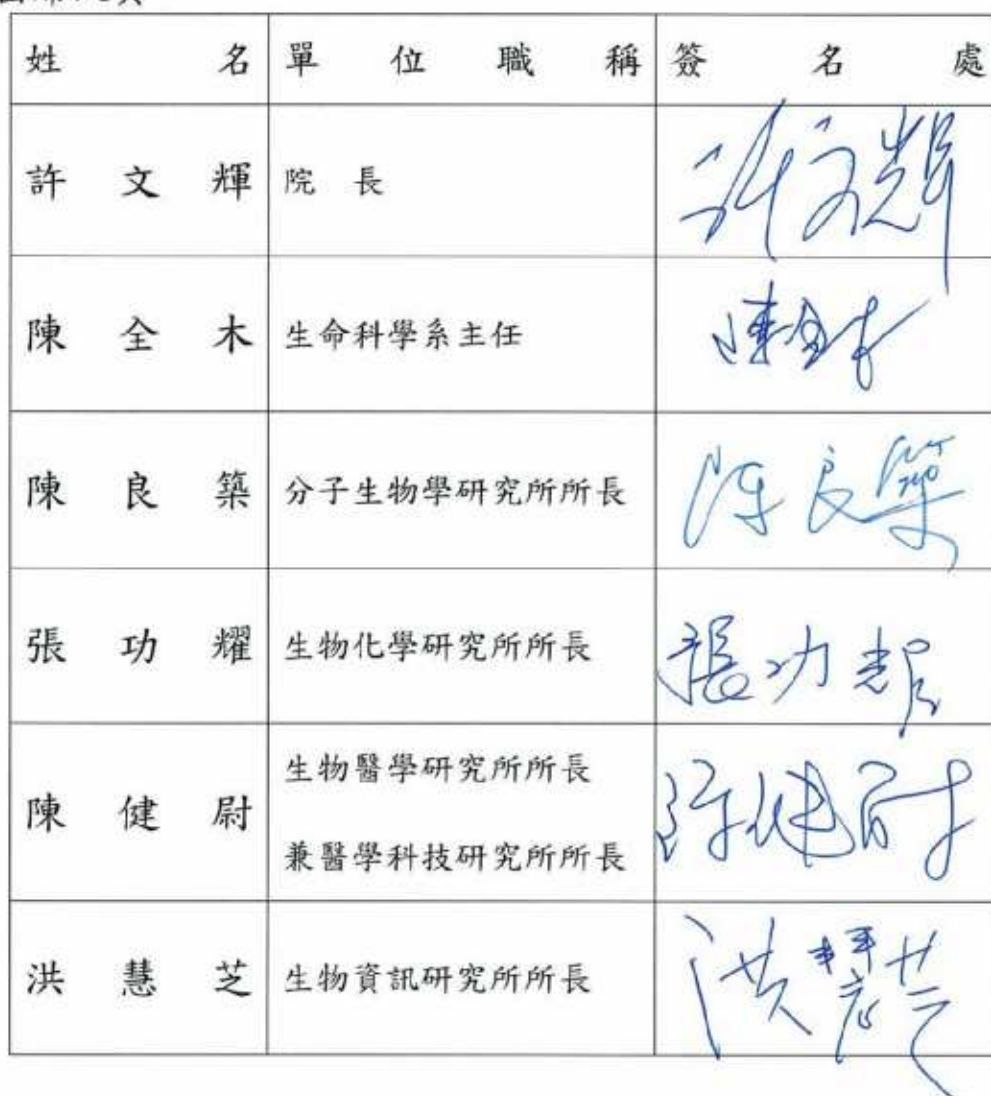 姓名 單位職稱 簽名處
許文輝 院長 許文輝
陳全木 生命科學系主任 陳全木
陳良築 分子生物學研究所所長 陳良築
張功耀 生物化學研究所所長 張功耀
陳健尉 生物醫學研究所所長 陳健尉
兼醫學科技研究所所長
洪慧芝 生物資訊研究所所長 洪慧芝